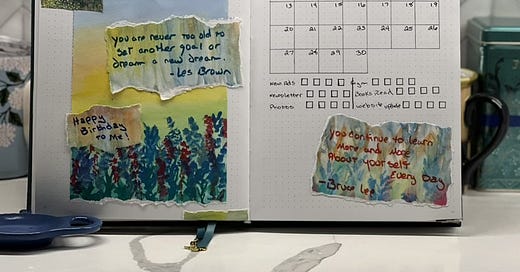 you are never too old to
set another goal or
dream a new dream.
-Les Brown
Happy
Birthday
to Me!
13 14 15 16 17 18 19
20 21 22 23 24 25 26
27 28 29 30
New ads
gym
Newsletter
Books Read
Photos
website update
you continue to learn
More and More
About yourself
Every Day
-Bruce Lee